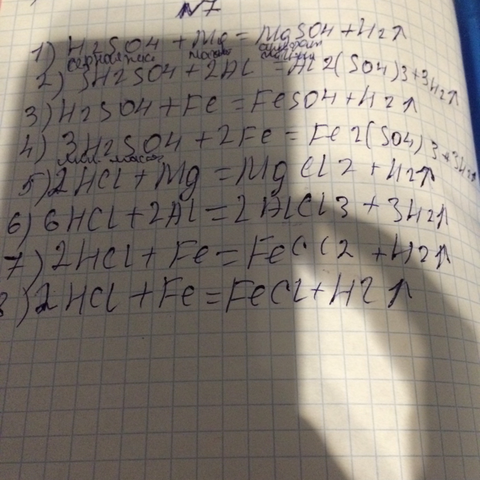 №7
1) H2SO4 + Mg = MgSO4 + H2↑
2) 3H2SO4 + 2Al = Al2(SO4)3 + 3H2↑
3) H2SO4 + Fe = FeSO4 + H2↑
4) 3H2SO4 + 2Fe = Fe2(SO4)3 + 3H2↑
5) 2HCl + Mg = MgCl2 + H2↑
6) 6HCl + 2Al = 2AlCl3 + 3H2↑
7) 2HCl + Fe = FeCl2 + H2↑
8) 2HCl + Fe = FeCl + H2↑